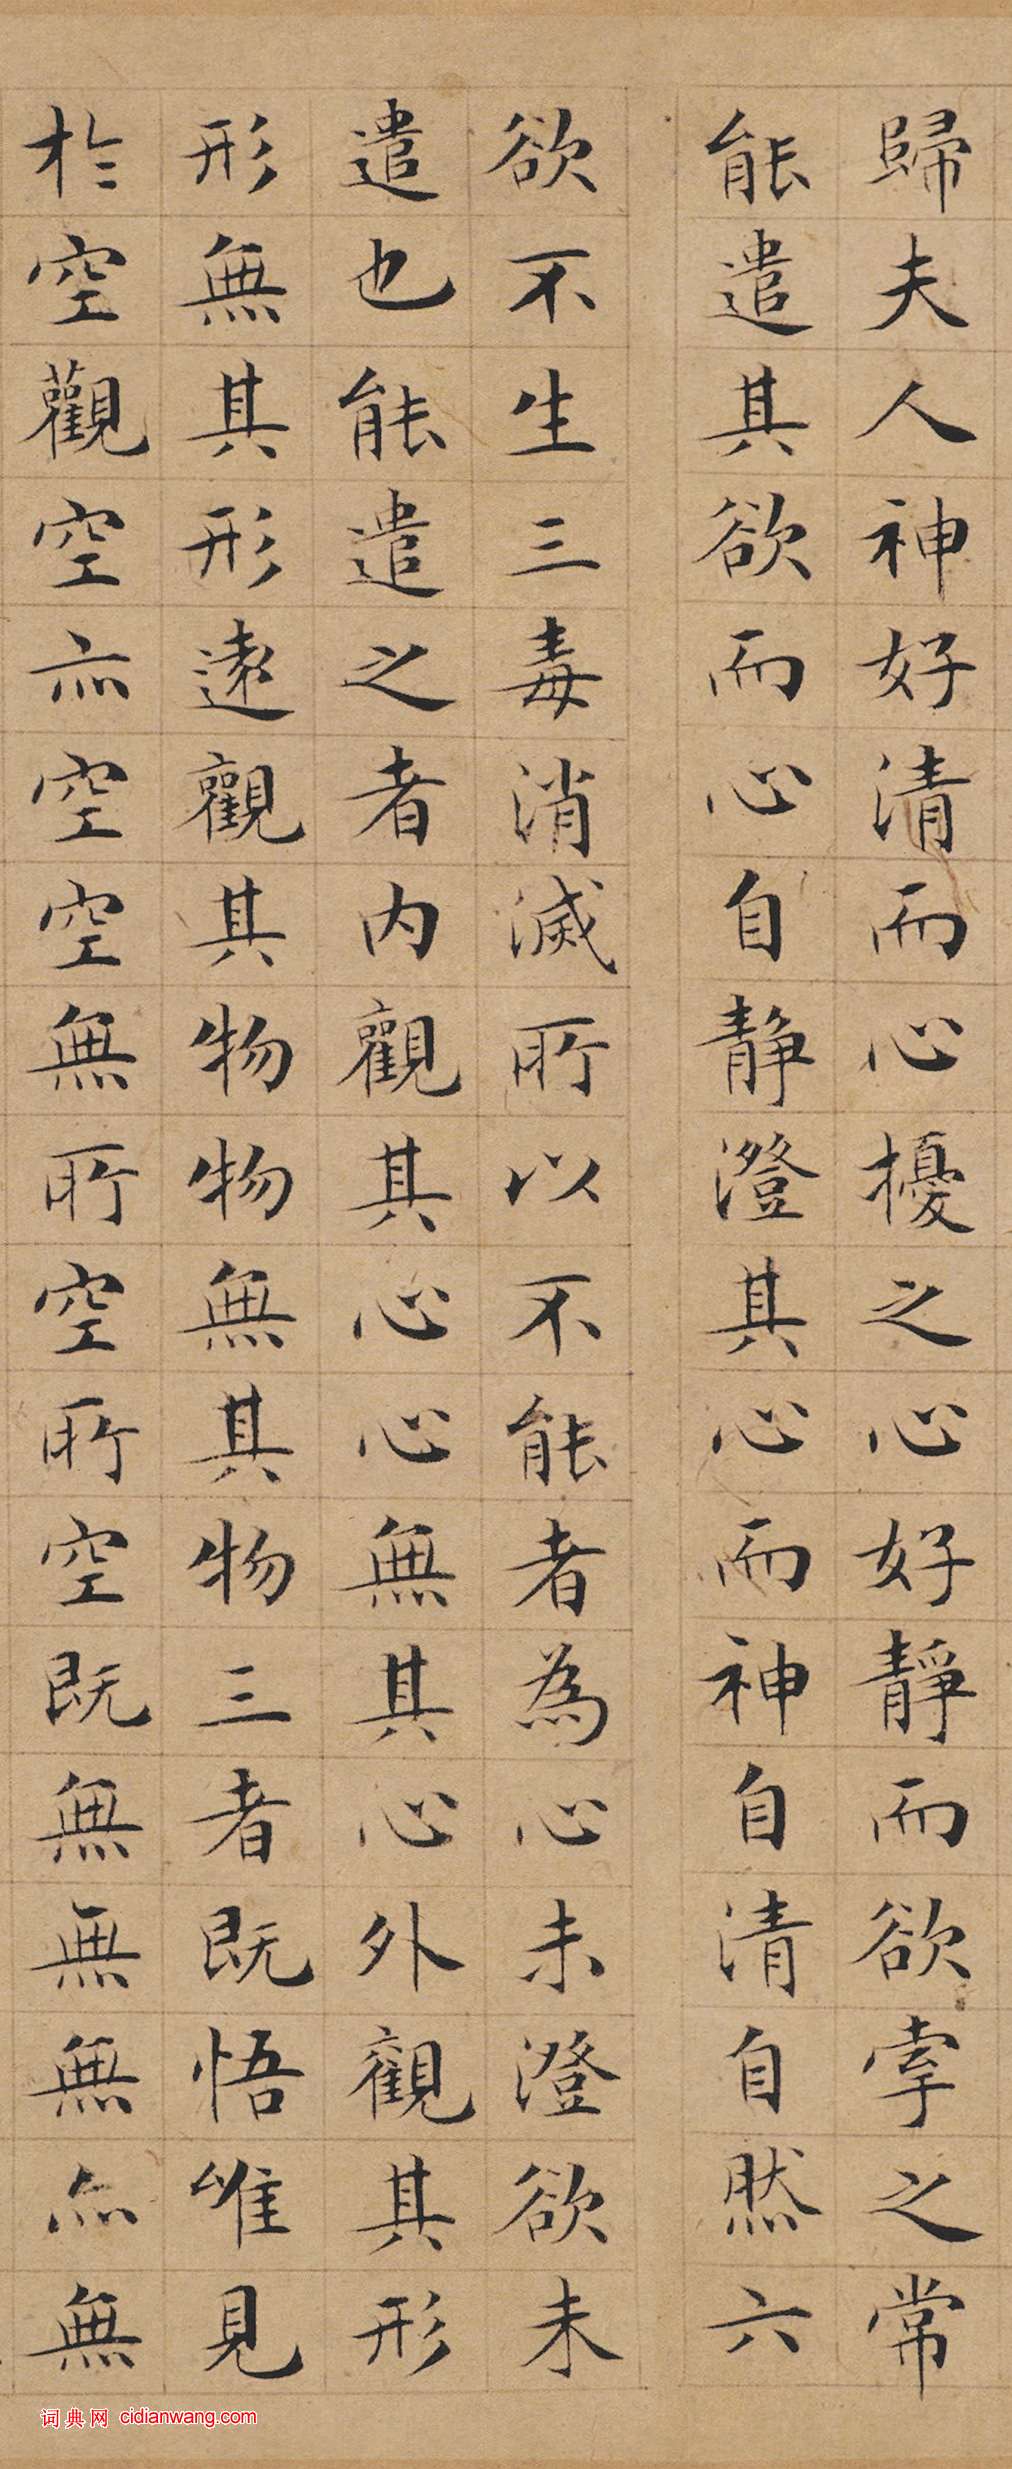 歸夫人神好清而心擾之心好靜而欲牽之常
能遣其欲而心自靜澄其心而神自清自然六
欲不生三毒消滅所以不能者為心未澄欲未
遣也能遣之者內觀其心心無其心外觀其形
形無其形遠觀其物物無其物三者既悟唯見
於空觀空亦空空無所空所空既無無無亦無
词典网 cidianwang.com